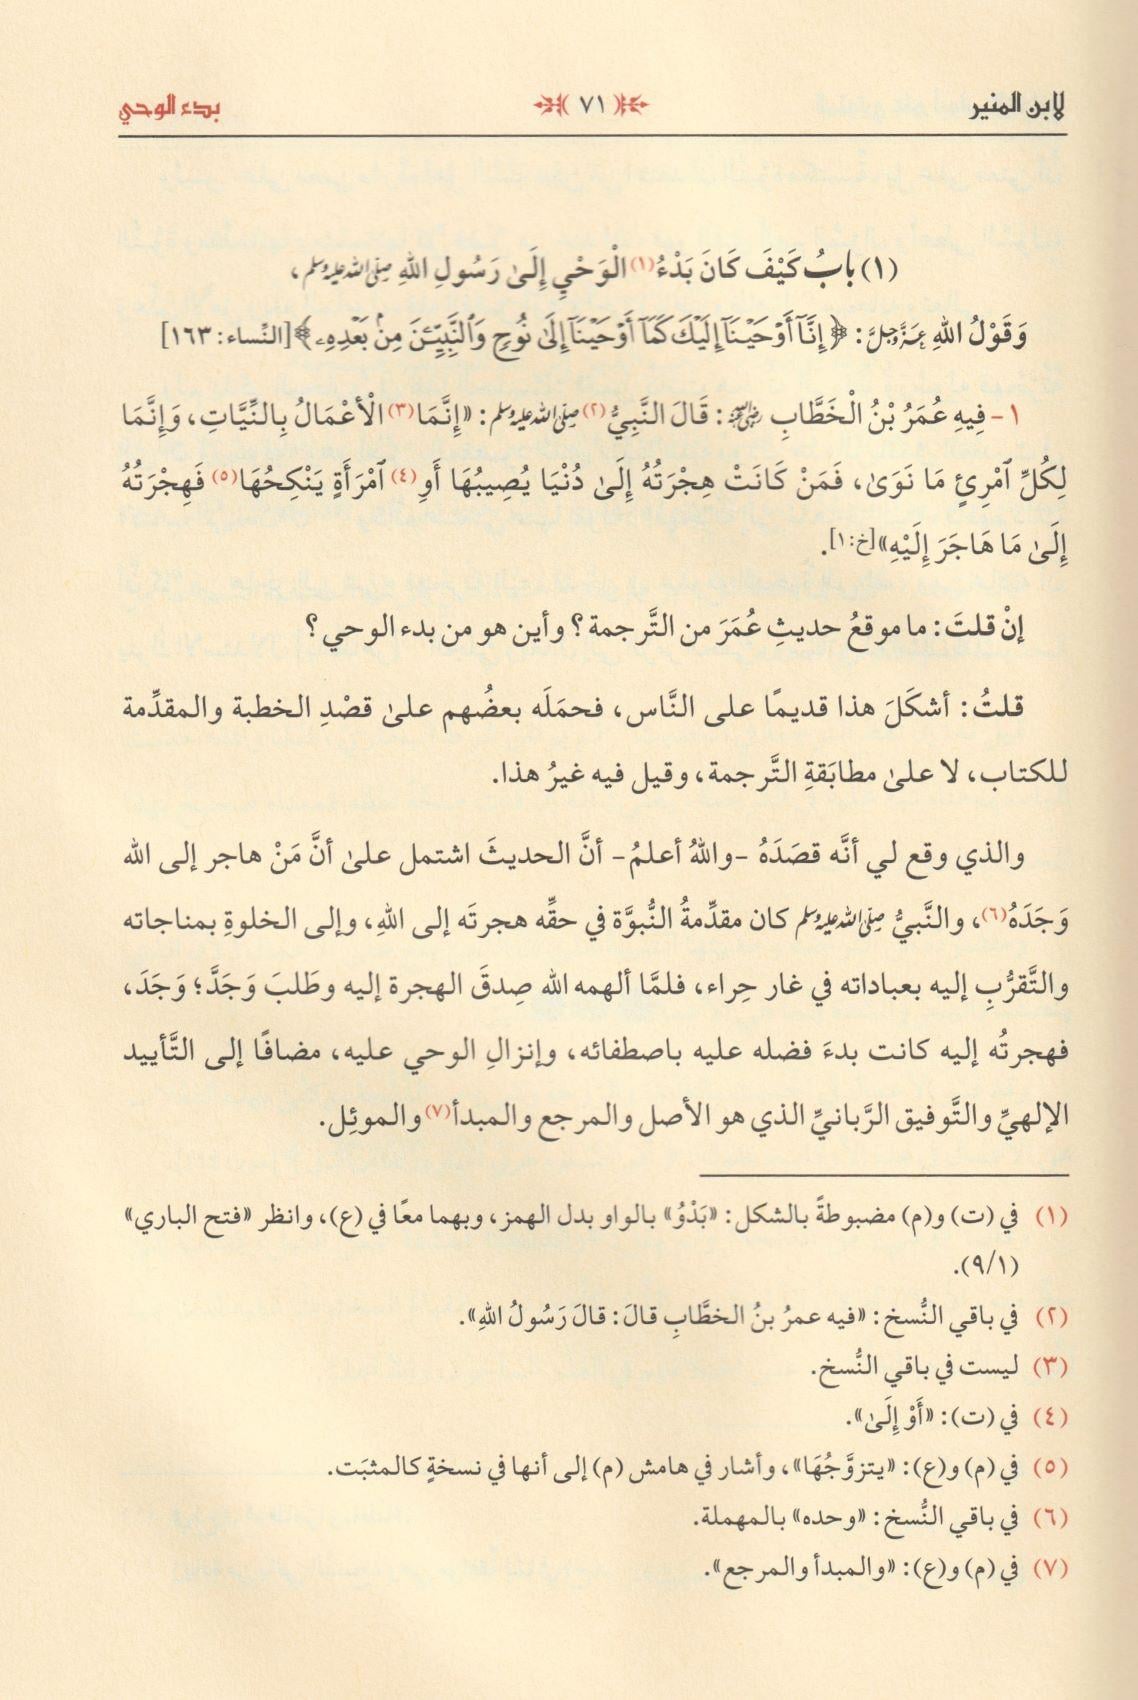 لابن المنير (٧١) بدء الوحي
(١) بابُ كَيْفَ كَانَ بَدْءُ(١) الْوَحْيِ إِلَىٰ رَسُولِ اللهِ ﷺ،
وَقَوْلُ اللهِ عَزَّوَجَلَّ: ﴿إِنَّآ أَوْحَيْنَآ إِلَيْكَ كَمَآ أَوْحَيْنَآ إِلَىٰ نُوحٍ وَٱلنَّبِيِّـۧنَ مِنۢ بَعْدِهِۦ﴾ [النِّساء: ١٦٣]
١ - فِيهِ عُمَرُ بْنُ الْخَطَّابِ ﵁: قَالَ النَّبِيُّ(٢) ﷺ: «إِنَّمَا(٣) الْأَعْمَالُ بِالنِّيَّاتِ، وَإِنَّمَا
لِكُلِّ ٱمْرِئٍ مَا نَوَىٰ، فَمَنْ كَانَتْ هِجْرَتُهُ إِلَىٰ دُنْيَا يُصِيبُهَا أَوِ(٤) ٱمْرَأَةٍ يَنْكِحُهَا(٥) فَهِجْرَتُهُ
إِلَىٰ مَا هَاجَرَ إِلَيْهِ» [خ: ١].
إنْ قلتَ: ما موقعُ حديثِ عُمَرَ من التَّرجمة؟ وأين هو من بدء الوحي؟
قلتُ: أشكَلَ هذا قديمًا على النَّاس، فحمَلَه بعضُهم علىٰ قصْدِ الخطبة والمقدِّمة
للكتاب، لا علىٰ مطابَقةِ التَّرجمة، وقيل فيه غيرُ هذا.
والذي وقع لي أنَّه قصَدَهُ -واللهُ أعلمُ- أنَّ الحديثَ اشتمل علىٰ أنَّ مَنْ هاجر إلى الله
وَجَدَهُ(٦)، والنَّبيُّ ﷺ كان مقدِّمةُ النُّبوَّة في حقِّه هجرتَه إلى اللهِ، وإلى الخلوةِ بمناجاته
والتَّقرُّبِ إليه بعباداته في غار حِراء، فلمَّا ألهمه الله صِدقَ الهجرة إليه وطَلبَ وَجَدَّ؛ وَجَدَ،
فهجرتُه إليه كانت بدءَ فضله عليه باصطفائه، وإنزالِ الوحي عليه، مضافًا إلى التَّأييد
الإلهيِّ والتَّوفيق الرَّبانيِّ الذي هو الأصل والمرجع والمبدأ(٧) والموئِل.
(١) في (ت) و(م) مضبوطةً بالشكل: «بَدْوُ» بالواو بدل الهمز، وبهما معًا في (ع)، وانظر «فتح الباري»
(٩/١).
(٢) في باقي النُّسخ: «فيه عمرُ بنُ الخطَّابِ قالَ: قالَ رَسُولُ اللهِ».
(٣) ليست في باقي النُّسخ.
(٤) في (ت): «أَوْ إِلَىٰ».
(٥) في (م) و(ع): «يتزوَّجُهَا»، وأشار في هامش (م) إلى أنها في نسخةٍ كالمثبَت.
(٦) في باقي النُّسخ: «وحده» بالمهملة.
(٧) في (م) و(ع): «والمبدأ والمرجع».